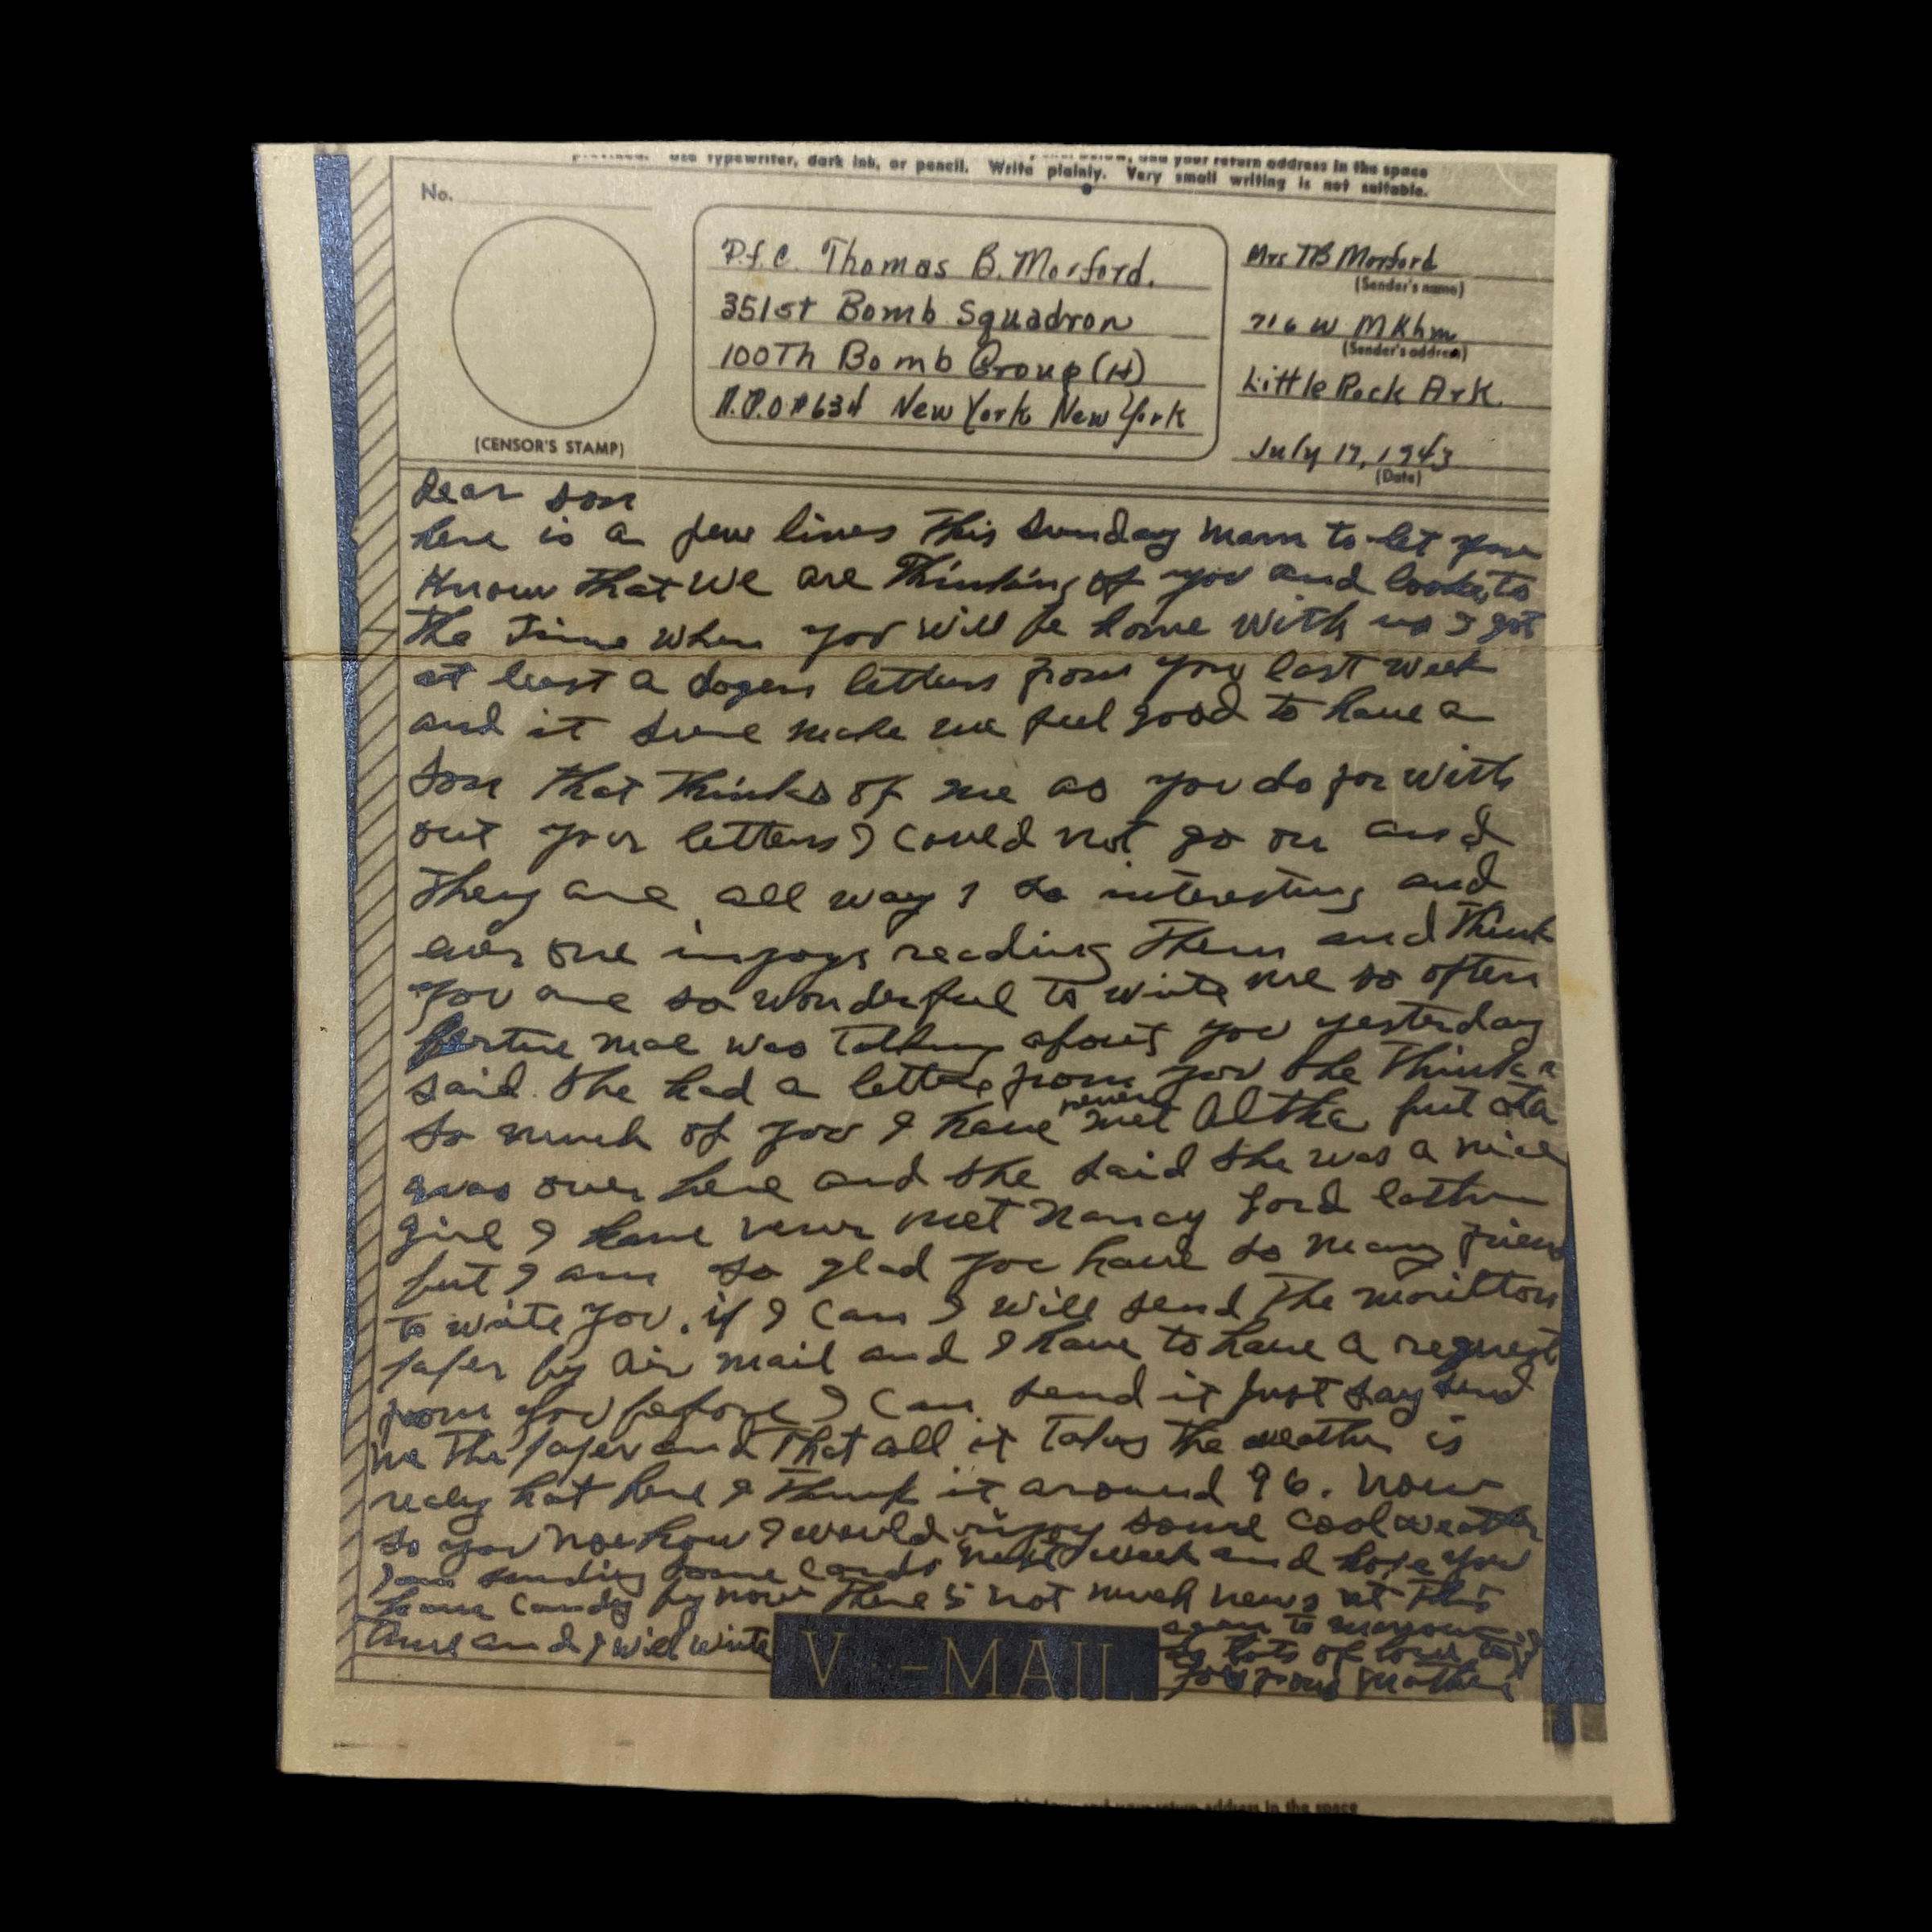 provided. Use typewriter, dark ink, or pencil. Write plainly. Very small writing is not suitable.
and your return address in the space
No.
(CENSOR'S STAMP)
P.f.C. Thomas B. Morford.
351st Bomb Squadron
100Th Bomb Group (H)
A.P.O #634 New York New York
Mrs TB Morford
(Sender's name)
716 W MKhm
(Sender's address)
Little Rock Ark.
July 17, 1943
(Date)
Dear son
here is a few lines This Sunday morn to let you
Know that we are Thinking of you and looks to
the Time when you will be home with us I got
at least a dozen letters from you last week
and it sure make me feel good to have a
son that thinks of me as you do for with
out your letters I could not go on and
They are all ways so interesting and
ever one injoys reading Them and Think
you are so wonderful to write me so often
mae was Talking about you yesterday
said she had a letter from you she Thinks
so much of you I have never met Altha but
was over here and she said she was a nice
girl I have never met Nancy
but I am so glad you have so many frien
to write you. if I can I will send The morilton
paper by air mail and I have to have a request
from you before I can send it Just say send
me The paper and That all it Takes the weather is
realy hot here I Think it around 96. now
so you no how I would injoy some cool weather
I am sending some cards next week and hope you
have candy by now There is not much news at This
Time and I will write
again to
lots of love to
you your Mother
V - - MAIL
and your return address in the space